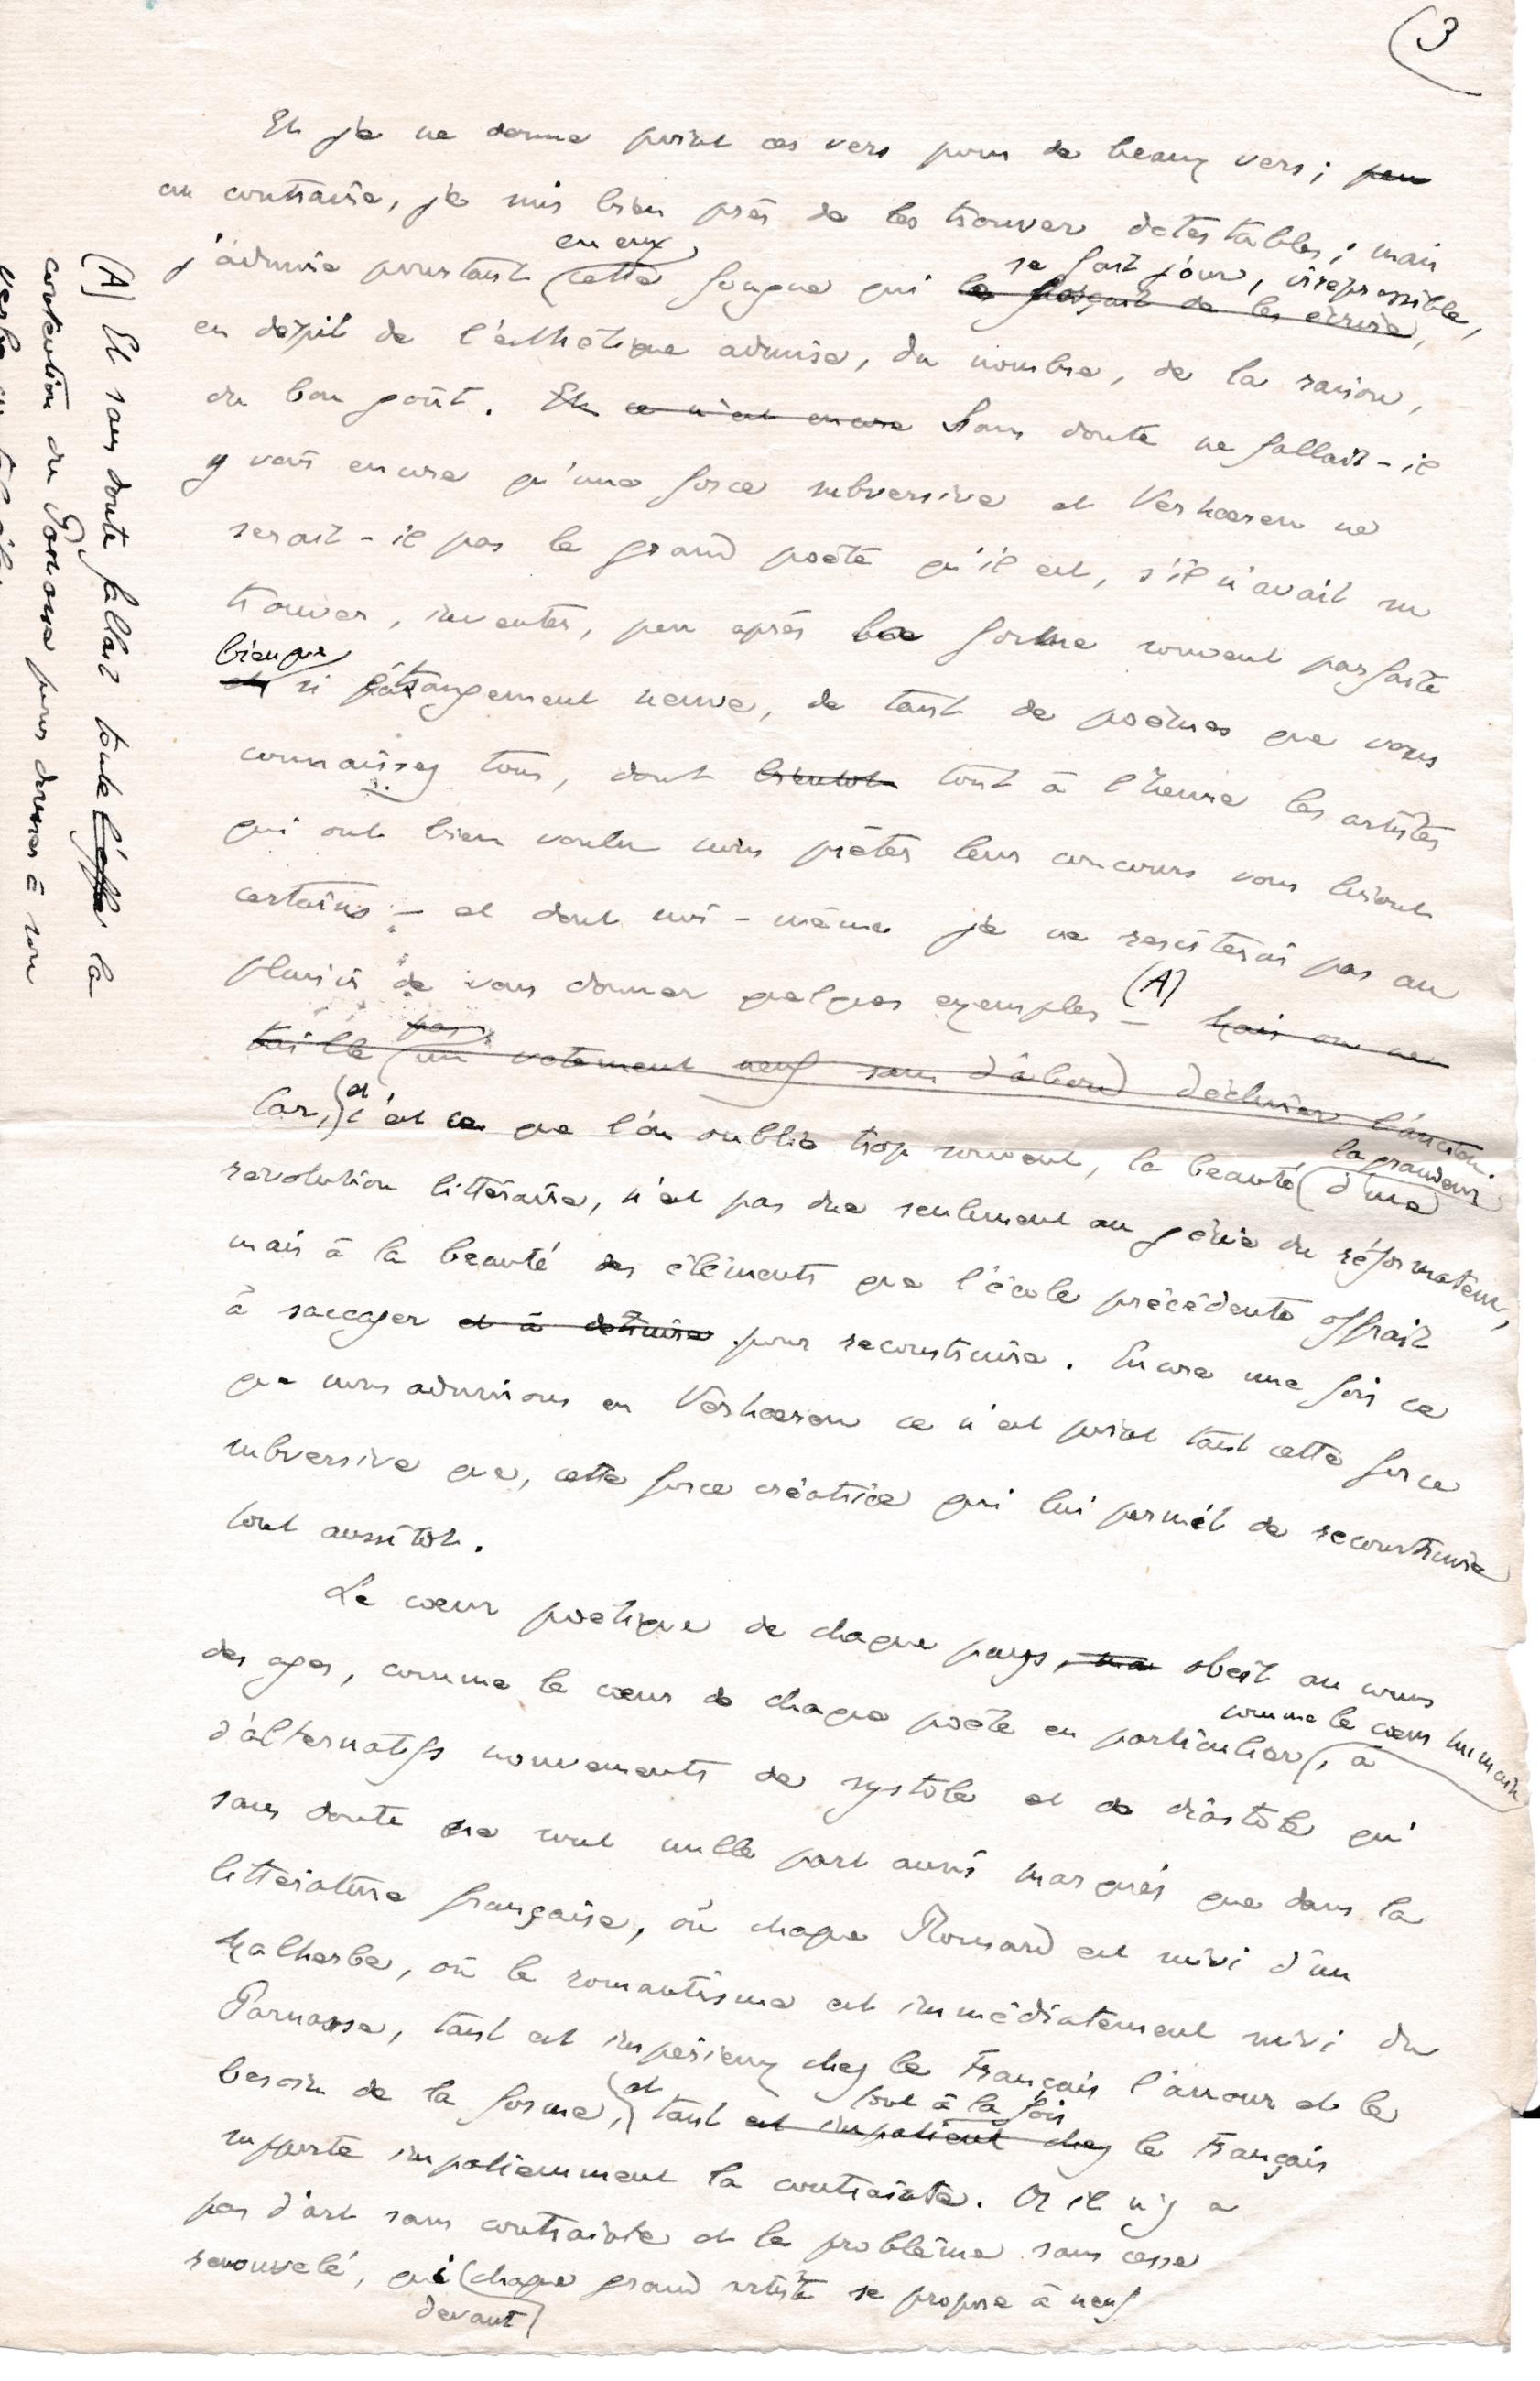 (3
Et je ne donne point ces vers pour de beaux vers ; peu
au contraire, je suis bien près de les trouver détestables ; mais
en eux
se fait jour, irrépressible,
j'admire pourtant cette fougue qui le forçait de les écrire,
en dépit de l'esthétique admise, du nombre, de la raison,
du bon goût. Et ce n'est encore Sans doute ne fallait-il
y voir encore qu'une force subversive et Verhaeren ne
serait-il pas le grand poète qu'il est, s'il n'avait su
trouver, inventer, peu après la forme souvent parfaite
bien que
et si étrangement neuve, de tant de poèmes que vous
connaissez tous, dont bientôt tout à l'heure les artistes
qui ont bien voulu nous prêter leur concours vous liront
certains – et dont moi-même je ne resisterai pas au
plaisir de vous donner quelques exemples – (A) Mais on ne
pas
taille un vetement neuf sans d'abord déchirer l'ancien.
Car, et c'est ce que l'on oublie trop souvent, la beauté, la grandeur d'une
révolution littéraire, n'est pas due seulement au génie du réformateur,
mais à la beauté des éléments que l'école précédente offrait
à saccager et à détruire pour reconstruire. Encore une fois ce
que nous admirons en Verhaeren ce n'est point tant cette force
subversive que, cette force créatrice qui lui permit de reconstruire
tout aussitôt.
Le cœur poétique de chaque pays, obeit au cours
des ages, comme le cœur de chaque poète en particulier, comme le cœur humain, a
d'alternatifs mouvements de systole et de diastole qui
sans doute ne sont nulle part aussi marqués que dans la
littérature française, où chaque Ronsard est suivi d'un
Malherbe, où le romantisme est immédiatement suivi du
Parnasse, tant est impérieux chez le Français l'amour et le
besoin de la forme, et tant est impatient chez tout à la fois le Français
supporte impatiemment la contrainte. Or il n'y a
pas d'art sans contrainte et le problème sans cesse
renouvelé, qui chaque grand artiste se propose à neuf
devant
(A) Et sans doute fallait toute l'effor la
contention du Parnasse pour donner à son